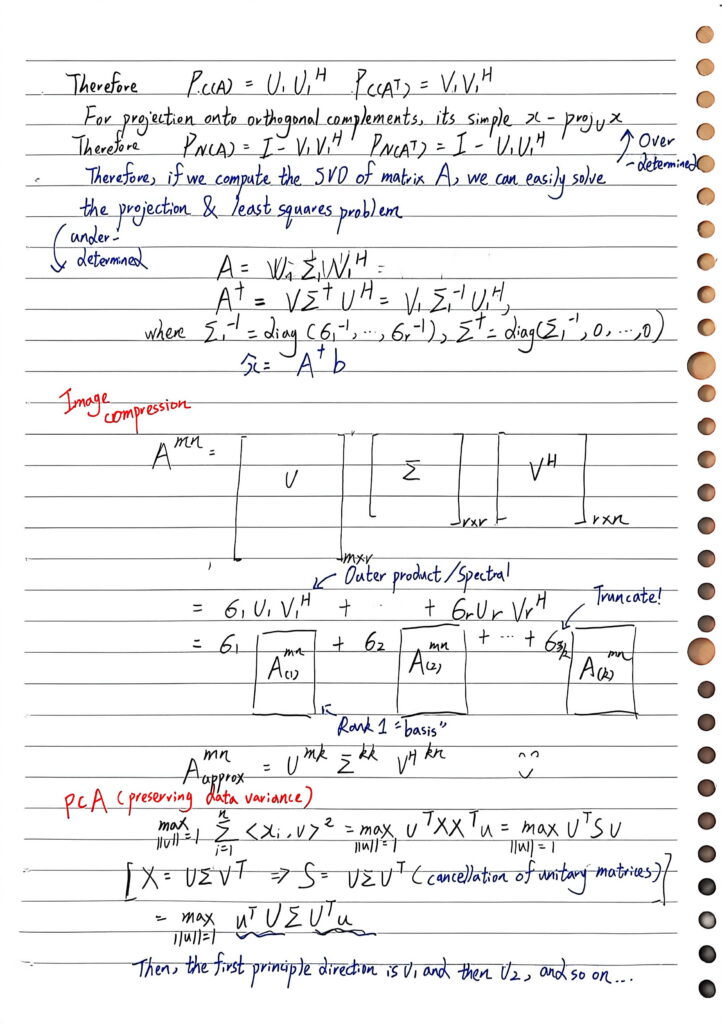 Therefore P_{C(A)} = U₁U₁ᴴ P_{C(Aᵀ)} = V₁V₁ᴴ
For projection onto orthogonal complements, its simple x - proj_U x
Therefore P_{N(A)} = I - V₁V₁ᴴ P_{N(Aᵀ)} = I - U₁U₁ᴴ
Over
-determined
Therefore, if we compute the SVD of matrix A, we can easily solve
the projection & least squares problem
under-
determined
A = U₁Σ₁V₁ᴴ =
A† = VΣ†Uᴴ = V₁Σ₁⁻¹U₁ᴴ,
where Σ₁⁻¹ = diag(6₁⁻¹, ..., 6ᵣ⁻¹), Σ† = diag(Σ₁⁻¹, 0, ..., 0)
x̂ = A†b
Image
compression
A^{mn} = [U]_{m×r} [Σ]_{r×r} [Vᴴ]_{r×n}
Outer product/Spectral
= 6₁U₁V₁ᴴ + · · + 6ᵣUᵣVᵣᴴ
Truncate!
= 6₁ A_{(1)}^{mn} + 6₂ A_{(2)}^{mn} + ... + 6ₖ A_{(k)}^{mn}
Rank 1 "basis"
A_{approx}^{mn} = U^{mk} Σ^{kk} V^{H kn}
PCA (preserving data variance)
max_{||u||=1} Σ_{i=1}^{n} <xᵢ, u>² = max_{||u||=1} uᵀXXᵀu = max_{||u||=1} uᵀSu
[X = UΣVᵀ ⇒ S = UΣUᵀ (cancellation of unitary matrices)]
= max_{||u||=1} uᵀUΣUᵀu
Then, the first principle direction is U₁ and then U₂, and so on...